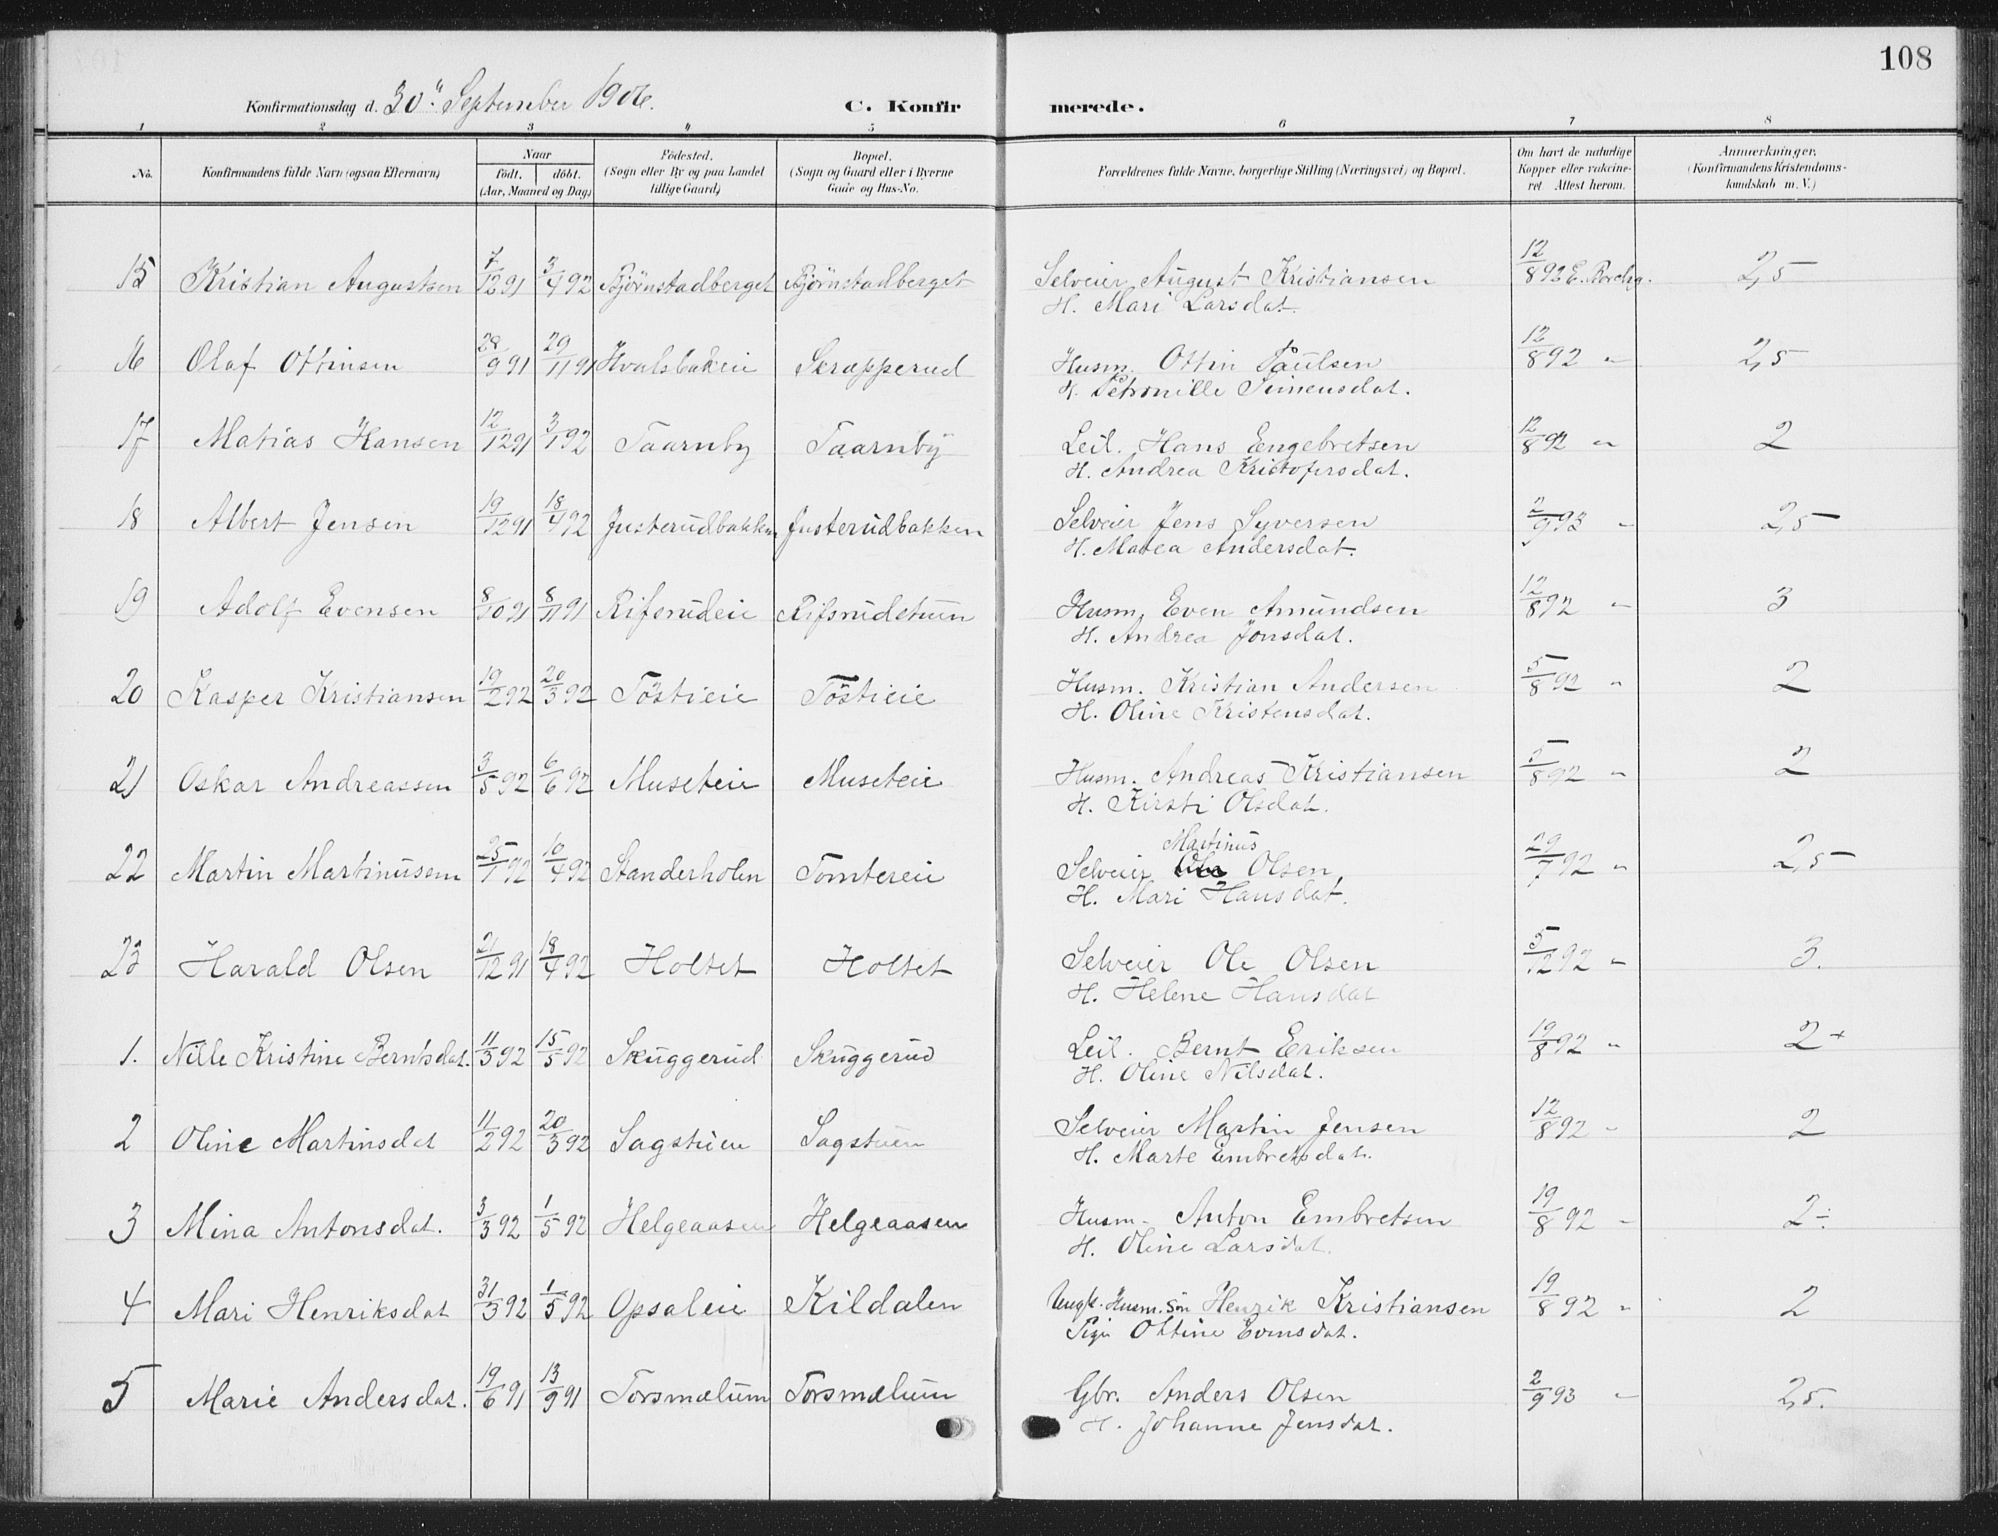 108
Konfirmationsdag d. 30" September 1906. C. Konfirmerede.
1 2 3 4 5 6 7 8
No. Konfirmandens fulde Navn (ogsaa Efternavn) Naar født. døbt. (Aar, Maaned og Dag) Fødested. (Sogn eller By og paa Landet tillige Gaard) Bopæl. (Sogn og Gaard eller i Byerne Gade og Hus-No. Forældrenes fulde Navne, borgerlige Stilling (Næringsvei) og Bopæl. Om havt de naturlige Kopper eller vakcineret Attest herom. Anmærkninger. (Konfirmandens Kristendomskundskab m. V.)
15 Kristian Augustsen 7/12 91 3/4 92 Bjørnstadberget Bjørnstadberget Selveier August Kristiansen 12/8 92 E. Borchg. 2,5
H. Mari Larsdat.
16 Olaf Ottinsen 28/9 91 29/11 91 Hvalsbakeie Skrapperud Husm. Ottin Paulsen 12/8 92 " 2,5
H. Petronille Simensdat.
17 Matias Hansen 12/12 91 3/1 92 Taarnby Taarnby Leil. Hans Engebretsen 12/8 92 " 2
H. Andrea Kristofersdat.
18 Albert Jensen 19/12 91 18/4 92 Justerudbakken Justerudbakken Selveier Jens Syversen 2/9 93 " 2,5
H. Matea Andersdat.
19 Adolf Evensen 8/10 91 8/11 91 Rifsrudeie Rifsrudstuen Husm. Even Amundsen 12/8 92 " 3
H. Andrea Jonsdat.
20 Kasper Kristiansen 19/2 92 20/3 92 Töstieie Töstieie Husm. Kristian Andersen 5/8 92 " 2
H. Oline Kristensdat.
21 Oskar Andreassen 3/5 92 6/6 92 Museteie Museteie Husm. Andreas Kristiansen 5/8 92 " 2
H. Kirsti Olsdat.
Martinus
22 Martin Martinussen 25/1 92 10/4 92 Standerholen Tomtereie Selveier Ole Olsen, 29/7 92 " 2,5
H. Mari Hansdat.
23 Harald Olsen 21/12 91 18/4 92 Holtet Holtet Selveier Ole Olsen 5/12 92 " 3.
H. Helene Hansdat
1. Nille Kristine Berntsdat. 11/3 92 15/5 92 Skuggerud Skuggerud Leil. Bernt Eriksen 19/8 92 " 2+
H. Oline Nilsdat.
2 Oline Martinsdat 11/2 92 20/3 92 Sagstuen Sagstuen Selveier Martin Jensen 12/8 92 " 2
H. Marte Embretsdat.
3 Mina Antonsdat. 3/3 92 1/5 92 Helgeaasen Helgeaasen Husm. Anton Embretsen 19/8 92 " 2÷
H. Oline Larsdat.
4 Mari Henriksdat 31/3 92 1/5 92 Opsaleie Kildalen Ungk. Husm. Søn Henrik Kristiansen 19/8 92 " 2
Pige Ottine Evensdat.
5 Marie Andersdat. 19/6 91 13/9 91 Torsmælum Torsmælum Gbr. Anders Olsen 2/9 93 " 2,5.
H. Johanne Jensdat.